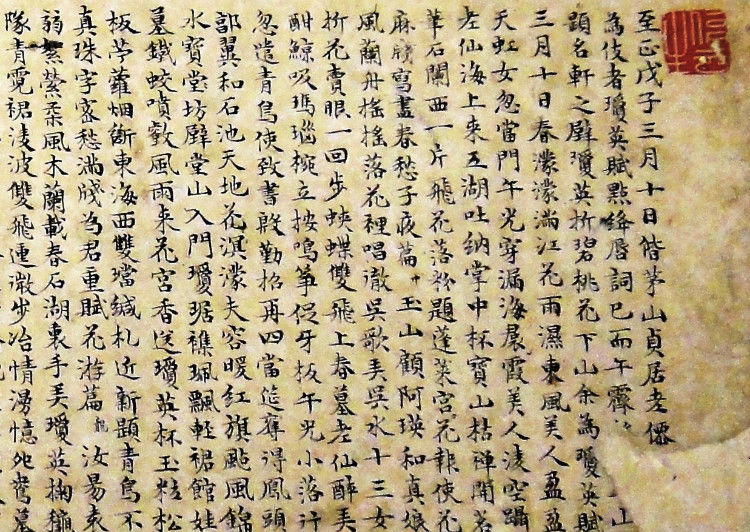 至正戊子三月十日偕茅山貞居老僊
為伎者瓊英賦點絳唇詞已而午霽 上山
題名軒之壁瓊英折碧桃花下山余為瓊英賦
三月十日春濛濛滿江花雨濕東風美人盈盈
天虹女忽當門午光穿漏海晨霞美人凌空躡
老仙海上来五湖吐納掌中杯寶山枯禪開茗
華石闌西一片飛花落粉題蓬萊宮花報使花
麻牋寫盡春愁子夜篇 玉山顧阿瑛和真娘
風蘭舟搖搖落花裡唱徹吳歌美吳水十三女
折花賣眼一回步蛺蝶雙飛上春墓老仙醉美
酣鯨吸瑪瑙椀立按鳴箏促牙板午光小落行
忽遣青鳥使致書殷勤招再四當筵奪得鳳頭
郭翼和石池天地花溟濛夫容暖紅旗颭風錦
水寶堂坊壁堂山入門瓊琚襍珮飄軽裙館娃
墓鐵蛟噴 風雨来花宮香送瓊英杯玉粒松
板苧蘿烟斷東海西雙璫緘札近新題青鳥不
真珠字密愁满牋为君重賦花游篇 汝昜袁
弱絮縈柔風木蘭載春石湖裏手美瓊英掬
隊青霓裙淩波雙飛連微步冶情湧憶 鴛墓